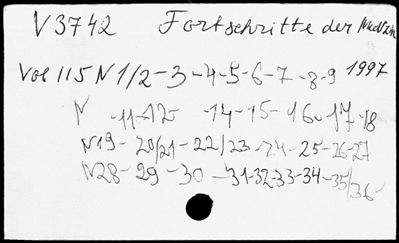 V 3742 Fortschritte der Medizin
Vol 115 N 1/2-3-4-5-6-7-8-9 1997
N -11-12- 14-15-16-17-18
N19-20/21-22/23-24-25-26-27
N28-29-30-31-32-33-34-35/36-